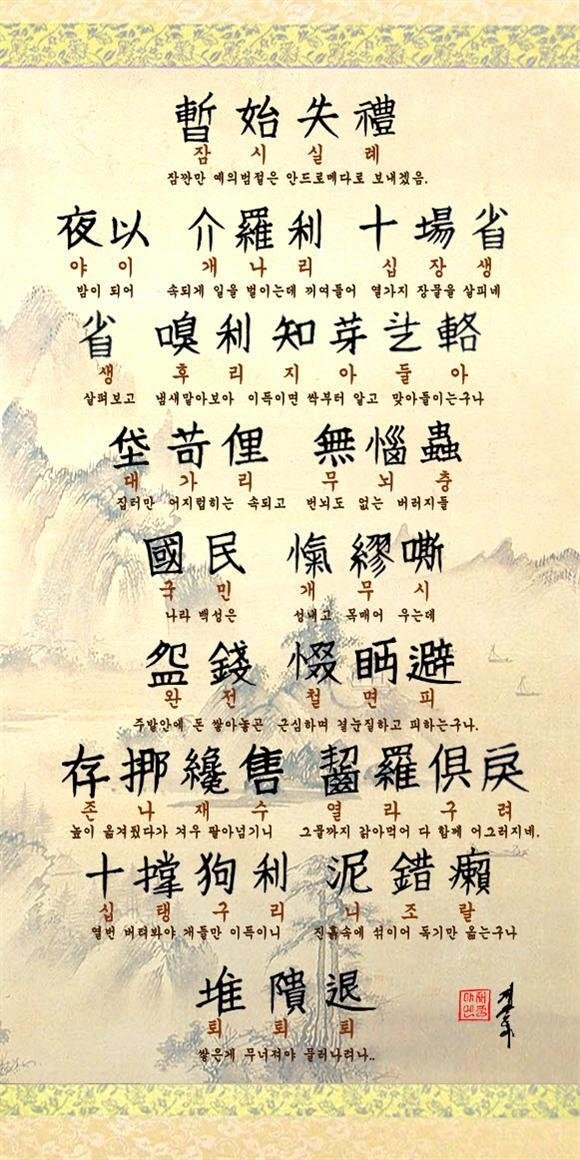 暫始失禮
잠시실례
잠깐만 예의범절은 안드로메다로 보내겠음.
夜以 介羅利 十場省
야이 개나리 십장생
밤이 되어 속되게 일을 벌이는데 끼여들어 열가지 장물을 살피네
省 嗅利知芽㐦輅
생 후리지아들아
살펴보고 냄새맡아보아 이득이면 싹부터 알고 맞아들이는구나
垈苛俚 無惱蟲
대가리 무뇌충
집터만 어지럽히는 속되고 번뇌도 없는 버러지들
國民 愾繆嘶
국민 개무시
나라 백성은 성내고 목매어 우는데
盌錢 惙眄避
완전 철면피
주발안에 돈 쌓아놓곤 근심하며 곁눈질하고 피하는구나.
存挪纔售 齧羅俱戾
존나재수 열라구려
높이 옮겨줬다가 겨우 팔아넘기니 그물까지 갉아먹어 다 함께 어그러지네.
十撑狗利 泥錯癩
십탱구리 니조랄
열번 버텨봐야 개들만 이득이니 진흙속에 섞이어 독기만 옮는구나
堆隤退
퇴퇴퇴
쌓은게 무너져야 물러나려나..